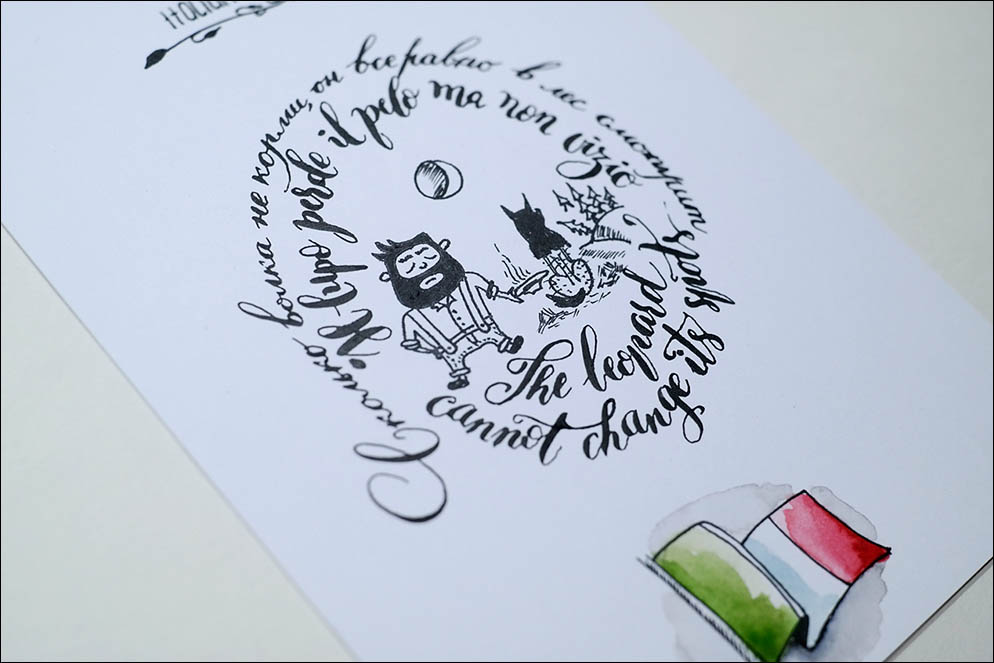 Сколько волка не корми, он всеравно в лес смотрит
Il lupo perde il pelo ma non vizio
The leopard
cannot change its spots